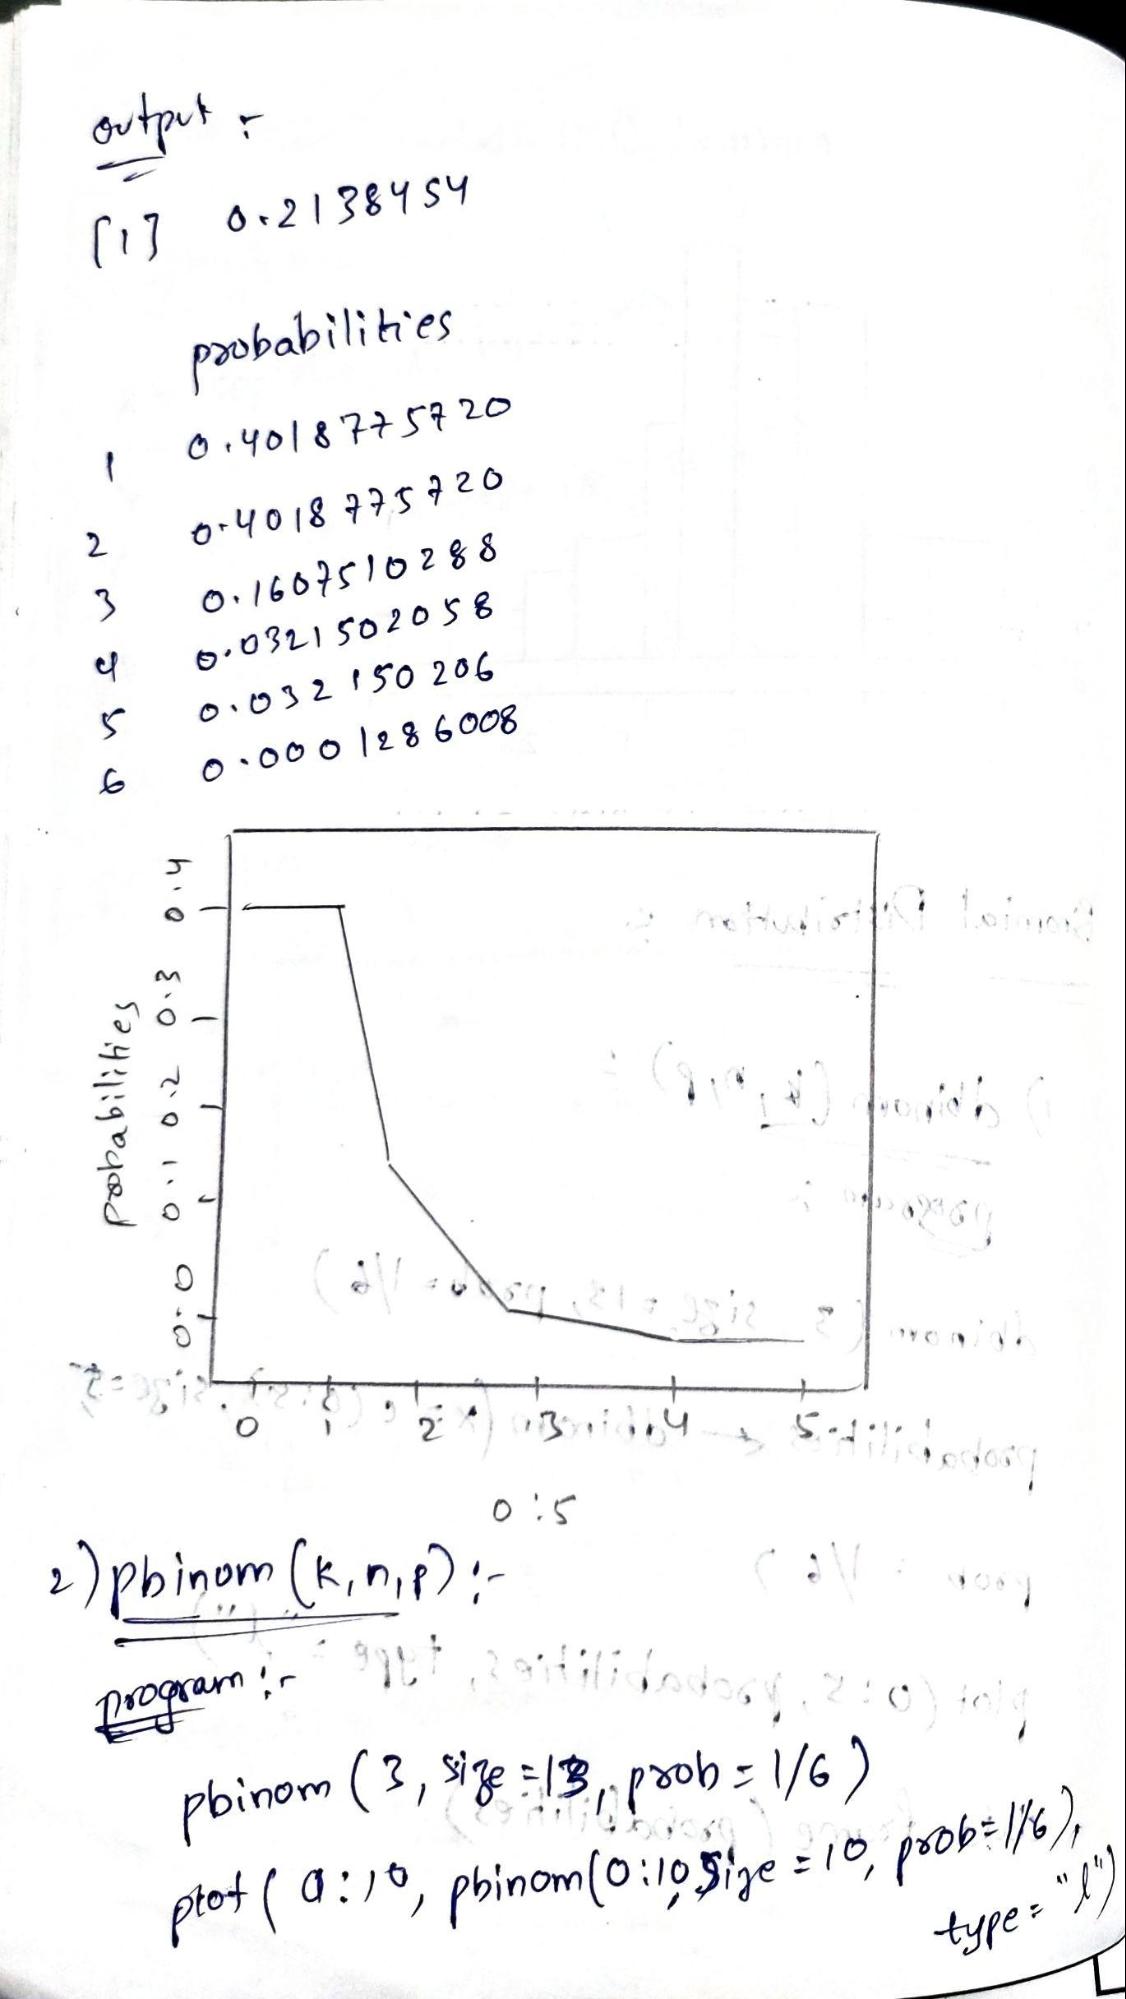 output :-
[1] 0.2138454
probabilities
1 0.4018775720
2 0.4018775720
3 0.1607510288
4 0.0321502058
5 0.032150206
6 0.0001286008
probabilities
0.4
0.3
0.2
0.1
0.0
0 1 2 3 4 5
0:5
2) pbinom (k,n,p) :-
program :-
pbinom (3, size =13, prob = 1/6)
plot ( 0:10, pbinom(0:10, size = 10, prob=1/6),
type = "l")